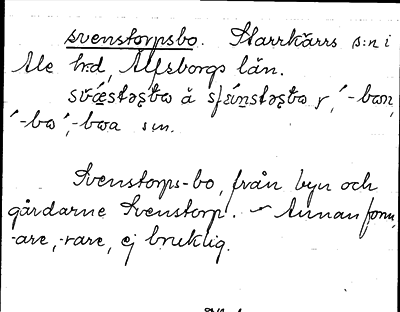 svenstorpsbo. Starrkärrs s:n i
Ale hd, Älfsborgs län.
å r, ´-bɯn,
´-bɯ ,-bɯa sm.
Svenstorps-bo, från byn och
gårdarne Svenstorp. – Annan form,
-are, -rare, ej bruklig.